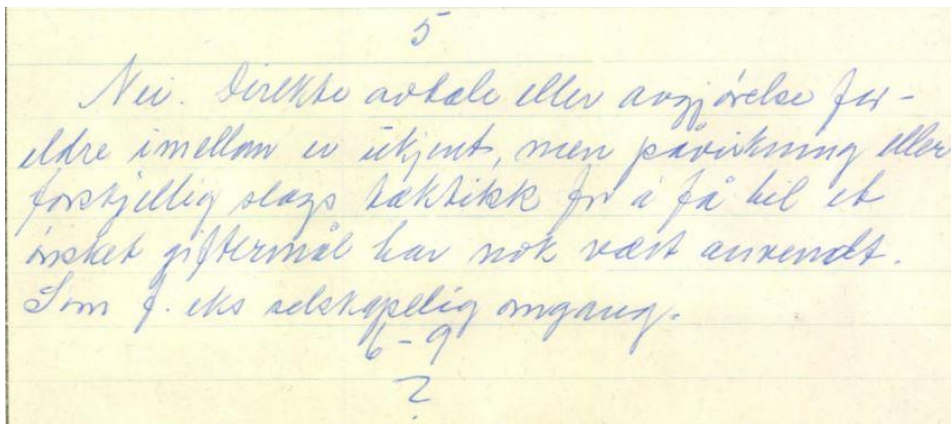 5
Nei. Direkte avtale eller avgjørelse for-
eldre imellom er ukjent, men påvirkning eller
forskjellig slags taktikk for å få til et
ønsket giftermål har nok vært anvendt.
Som f. eks selskapelig omgang.
6-9
?